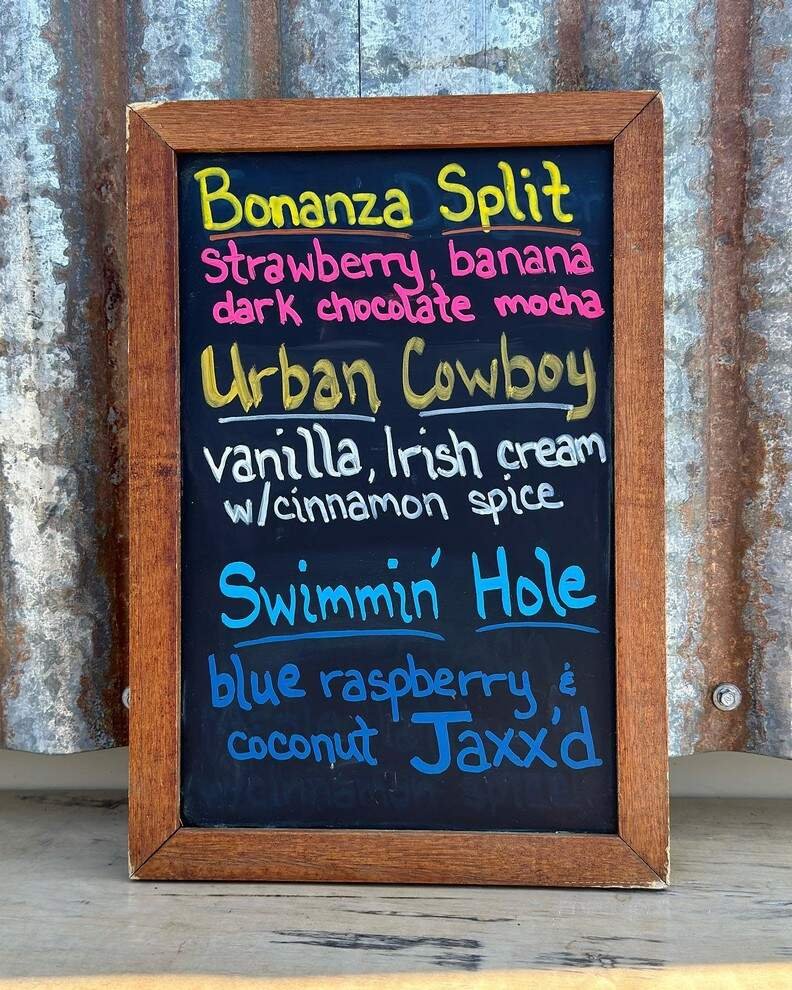 Bonanza Split
strawberry, banana
dark chocolate mocha
Urban Cowboy
vanilla, Irish cream
w/cinnamon spice
Swimmin' Hole
blue raspberry &
coconut Jaxx'd